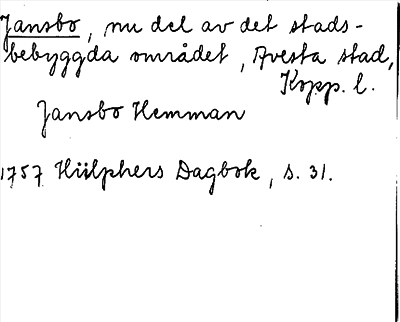 Jansbo, nu del av det stads-
bebyggda området, Avesta stad,
Kopp. l.
Jansbo Hemman
1757 Hülphers Dagbok, s. 31.